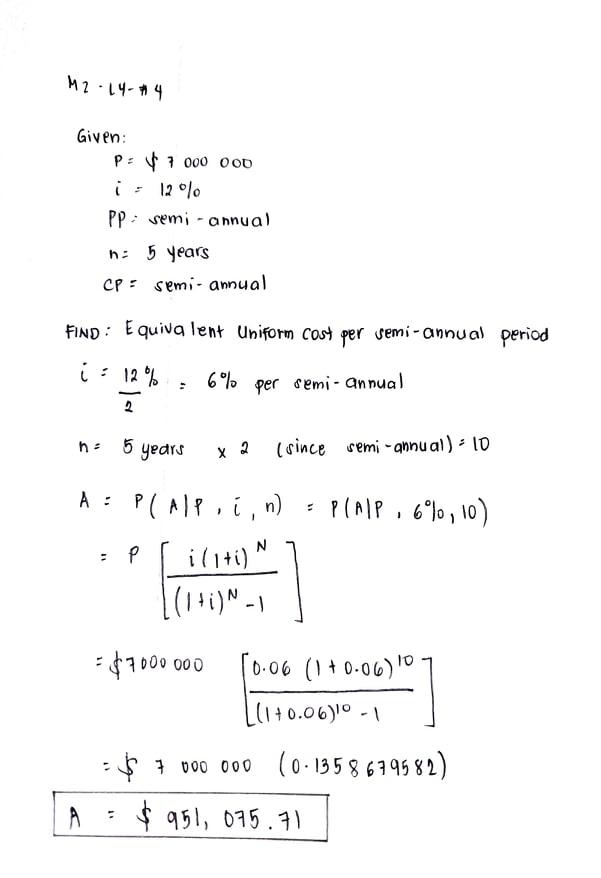 M2 - L4 - #4
Given:
P = $ 7 000 000
i = 12 %
PP: semi-annual
n = 5 years
CP = semi-annual
FIND: Equivalent Uniform cost per semi-annual period
i = 12 % / 2 = 6% per semi-annual
n = 5 years x 2 (since semi-annual) = 10
A = P ( A|P, i, n) = P(A|P, 6%, 10)
= P [ i(1+i)^N / (1+i)^N - 1 ]
= $7 000 000 [ 0.06 (1 + 0.06)^10 / (1+0.06)^10 - 1 ]
= $ 7 000 000 (0.1358679582)
A = $ 951, 075.71